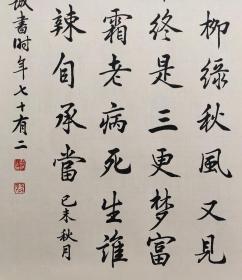 柳绿秋風又見
终是三更梦富
霜老病死生誰
辣自承當 己未秋月
诚書时年七十有二